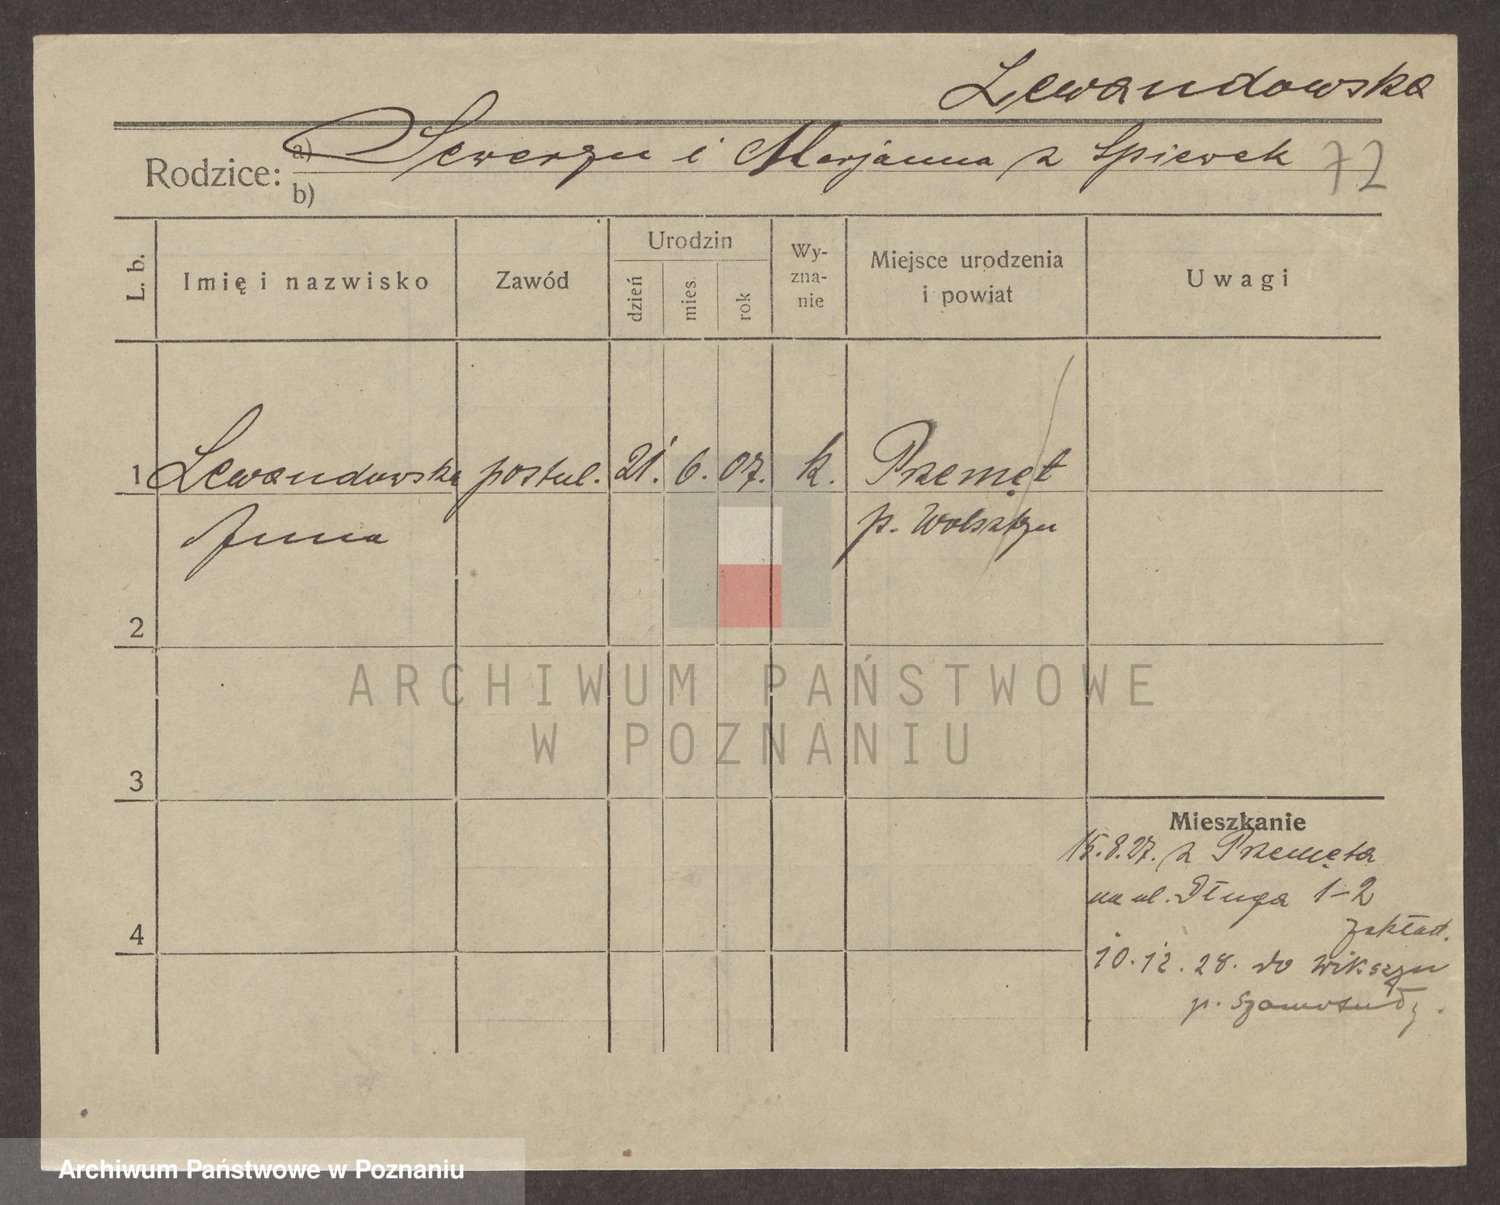 Lewandowska
Rodzice: a) Seweryn i Marjanna z Spiewek 72
b)
L. b.
Imię i nazwisko
Zawód
Urodzin
dzień
mies.
rok
Wy-
zna-
nie
Miejsce urodzenia
i powiat
Uwagi
1 Lewandowska postul. 21. 6. 07. k. Przemęt
Anna p. Wolsztyn
2
3
4
Mieszkanie
15.8.27. z Przemęta
na ul. Długa 1-2
zakład.
10.12.28. do
p.
ARCHIWUM PAŃSTWOWE
W POZNANIU
Archiwum Państwowe w Poznaniu